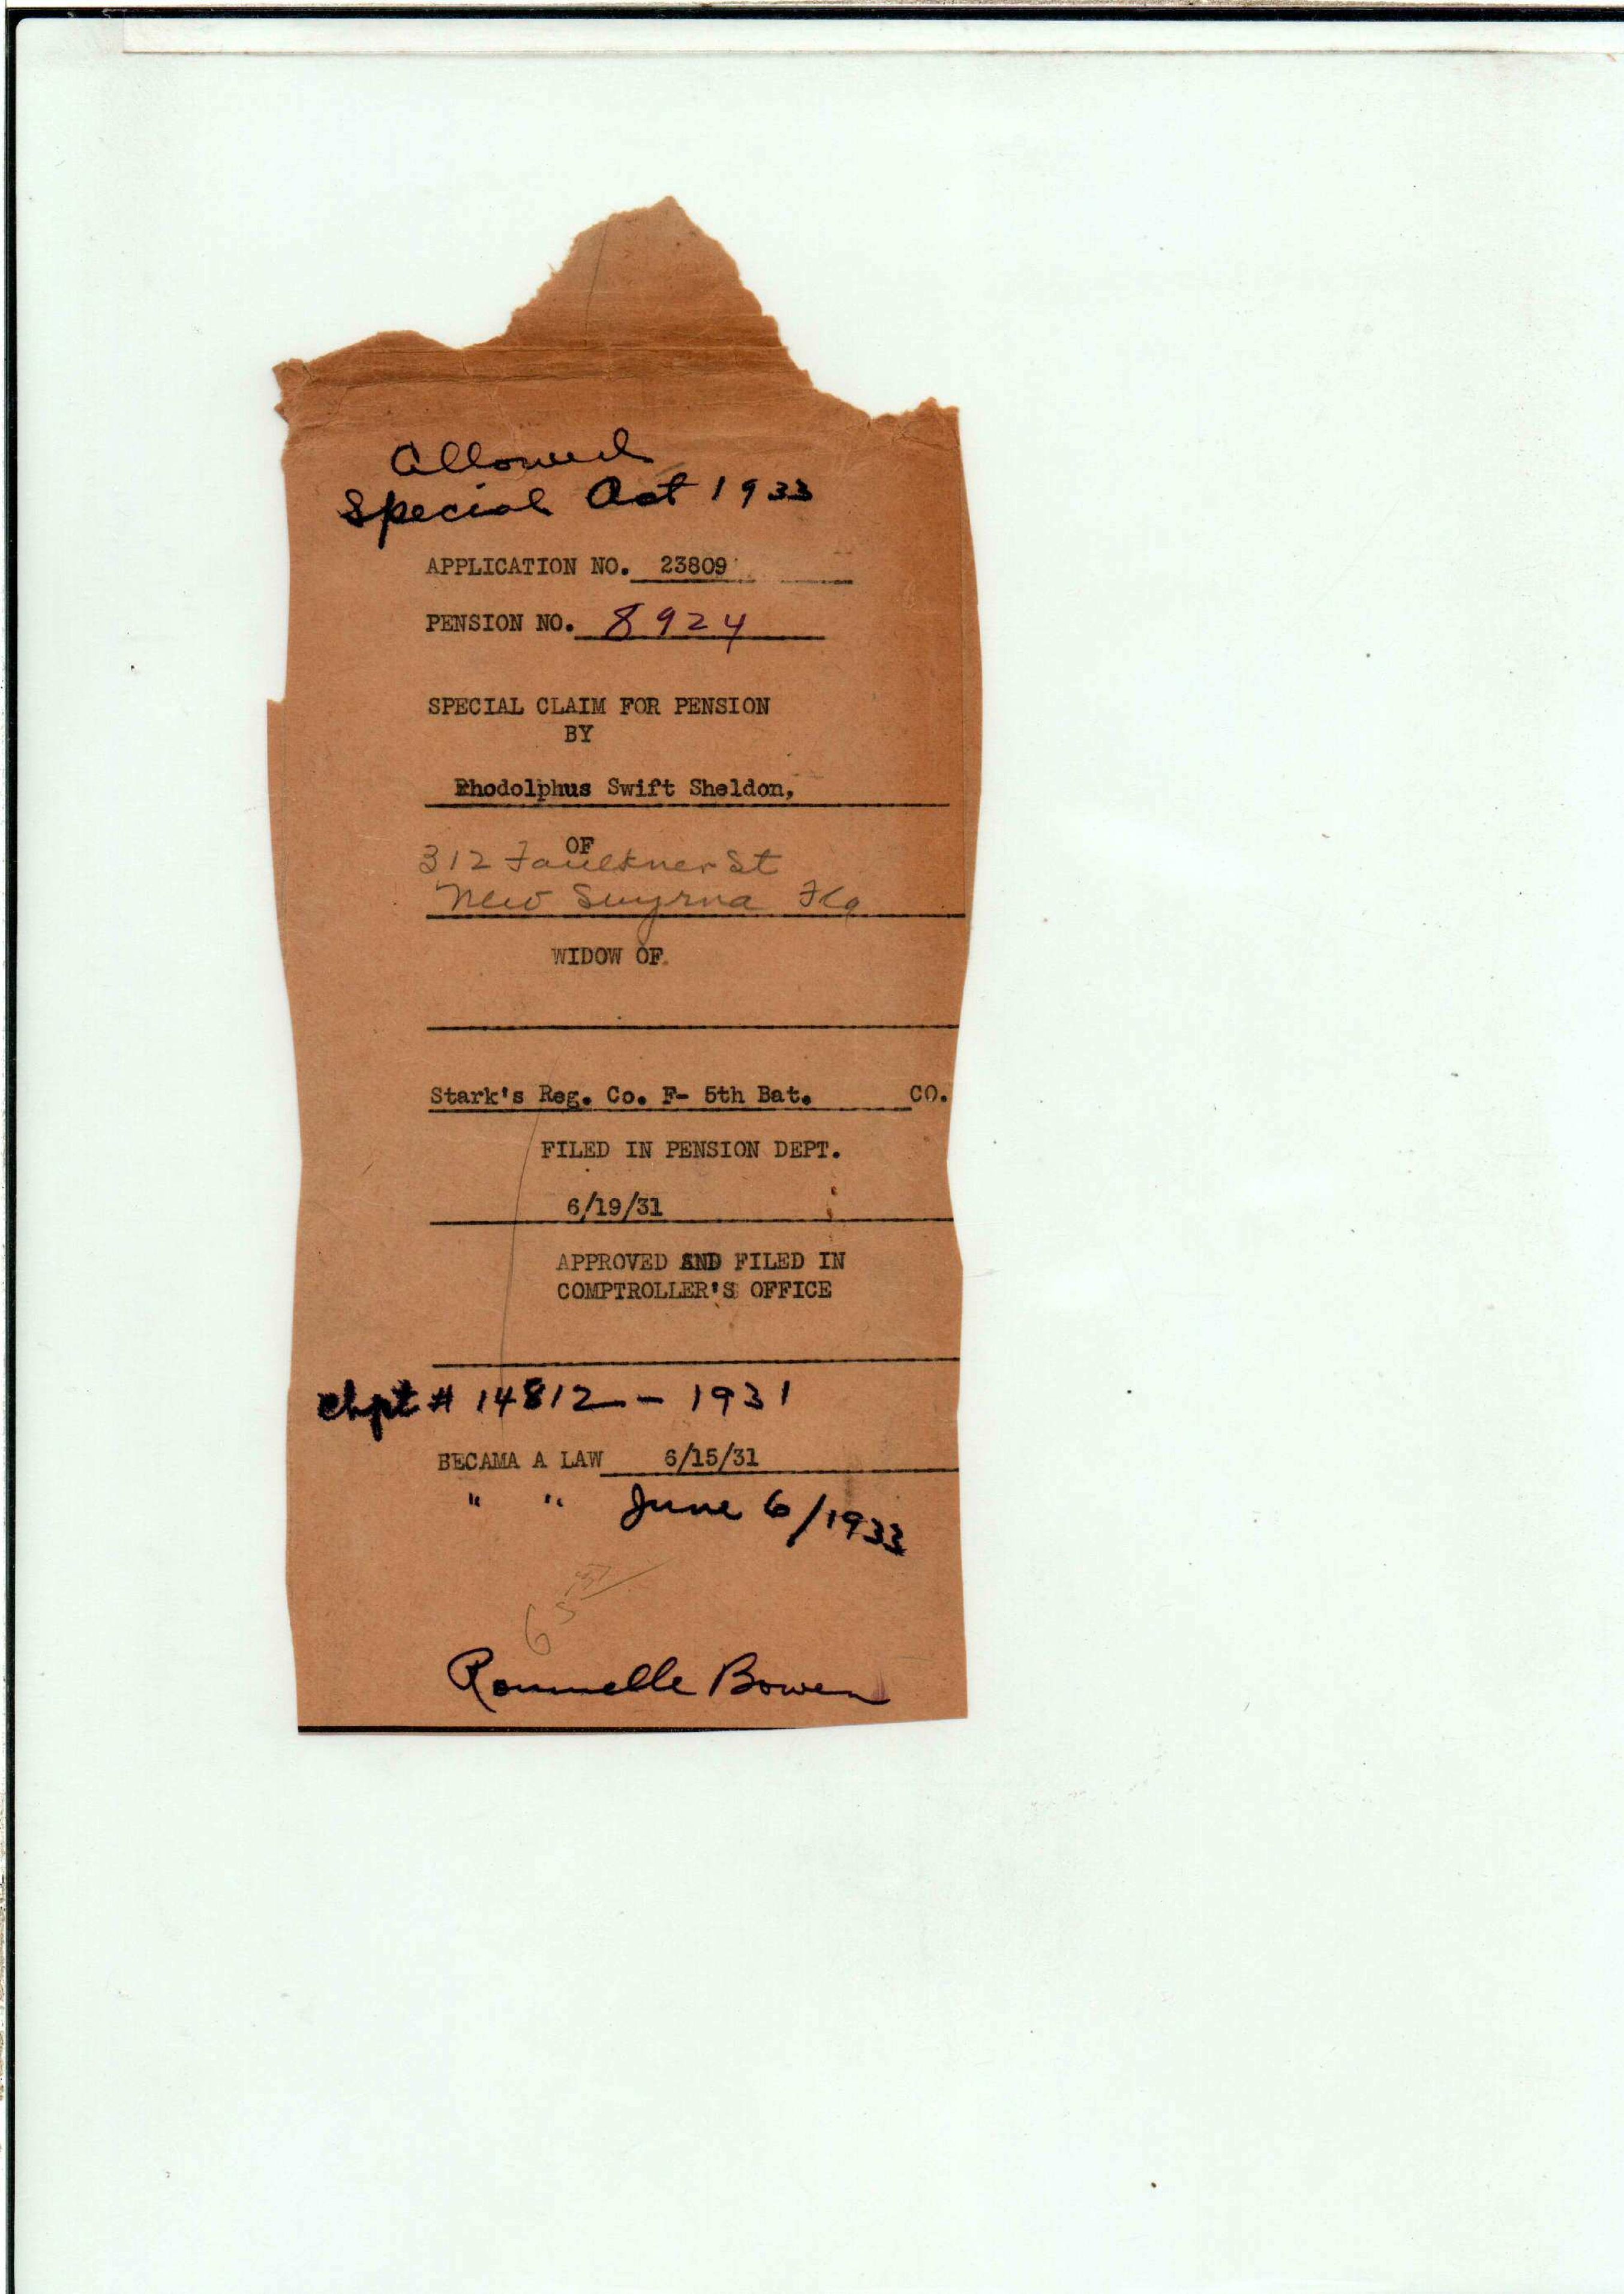 Allowed
Special Act 1933
APPLICATION NO. 23809
PENSION NO. 8924
SPECIAL CLAIM FOR PENSION
BY
Rhodolphus Swift Sheldon,
OF
312 Faulkner St
New Smyrna Fla
WIDOW OF
Stark's Reg. Co. F- 5th Bat. CO.
FILED IN PENSION DEPT.
6/19/31
APPROVED AND FILED IN
COMPTROLLER'S OFFICE
Chpt # 14812 - 1931
BECAMA A LAW 6/15/31
" " June 6/1933
Bowen